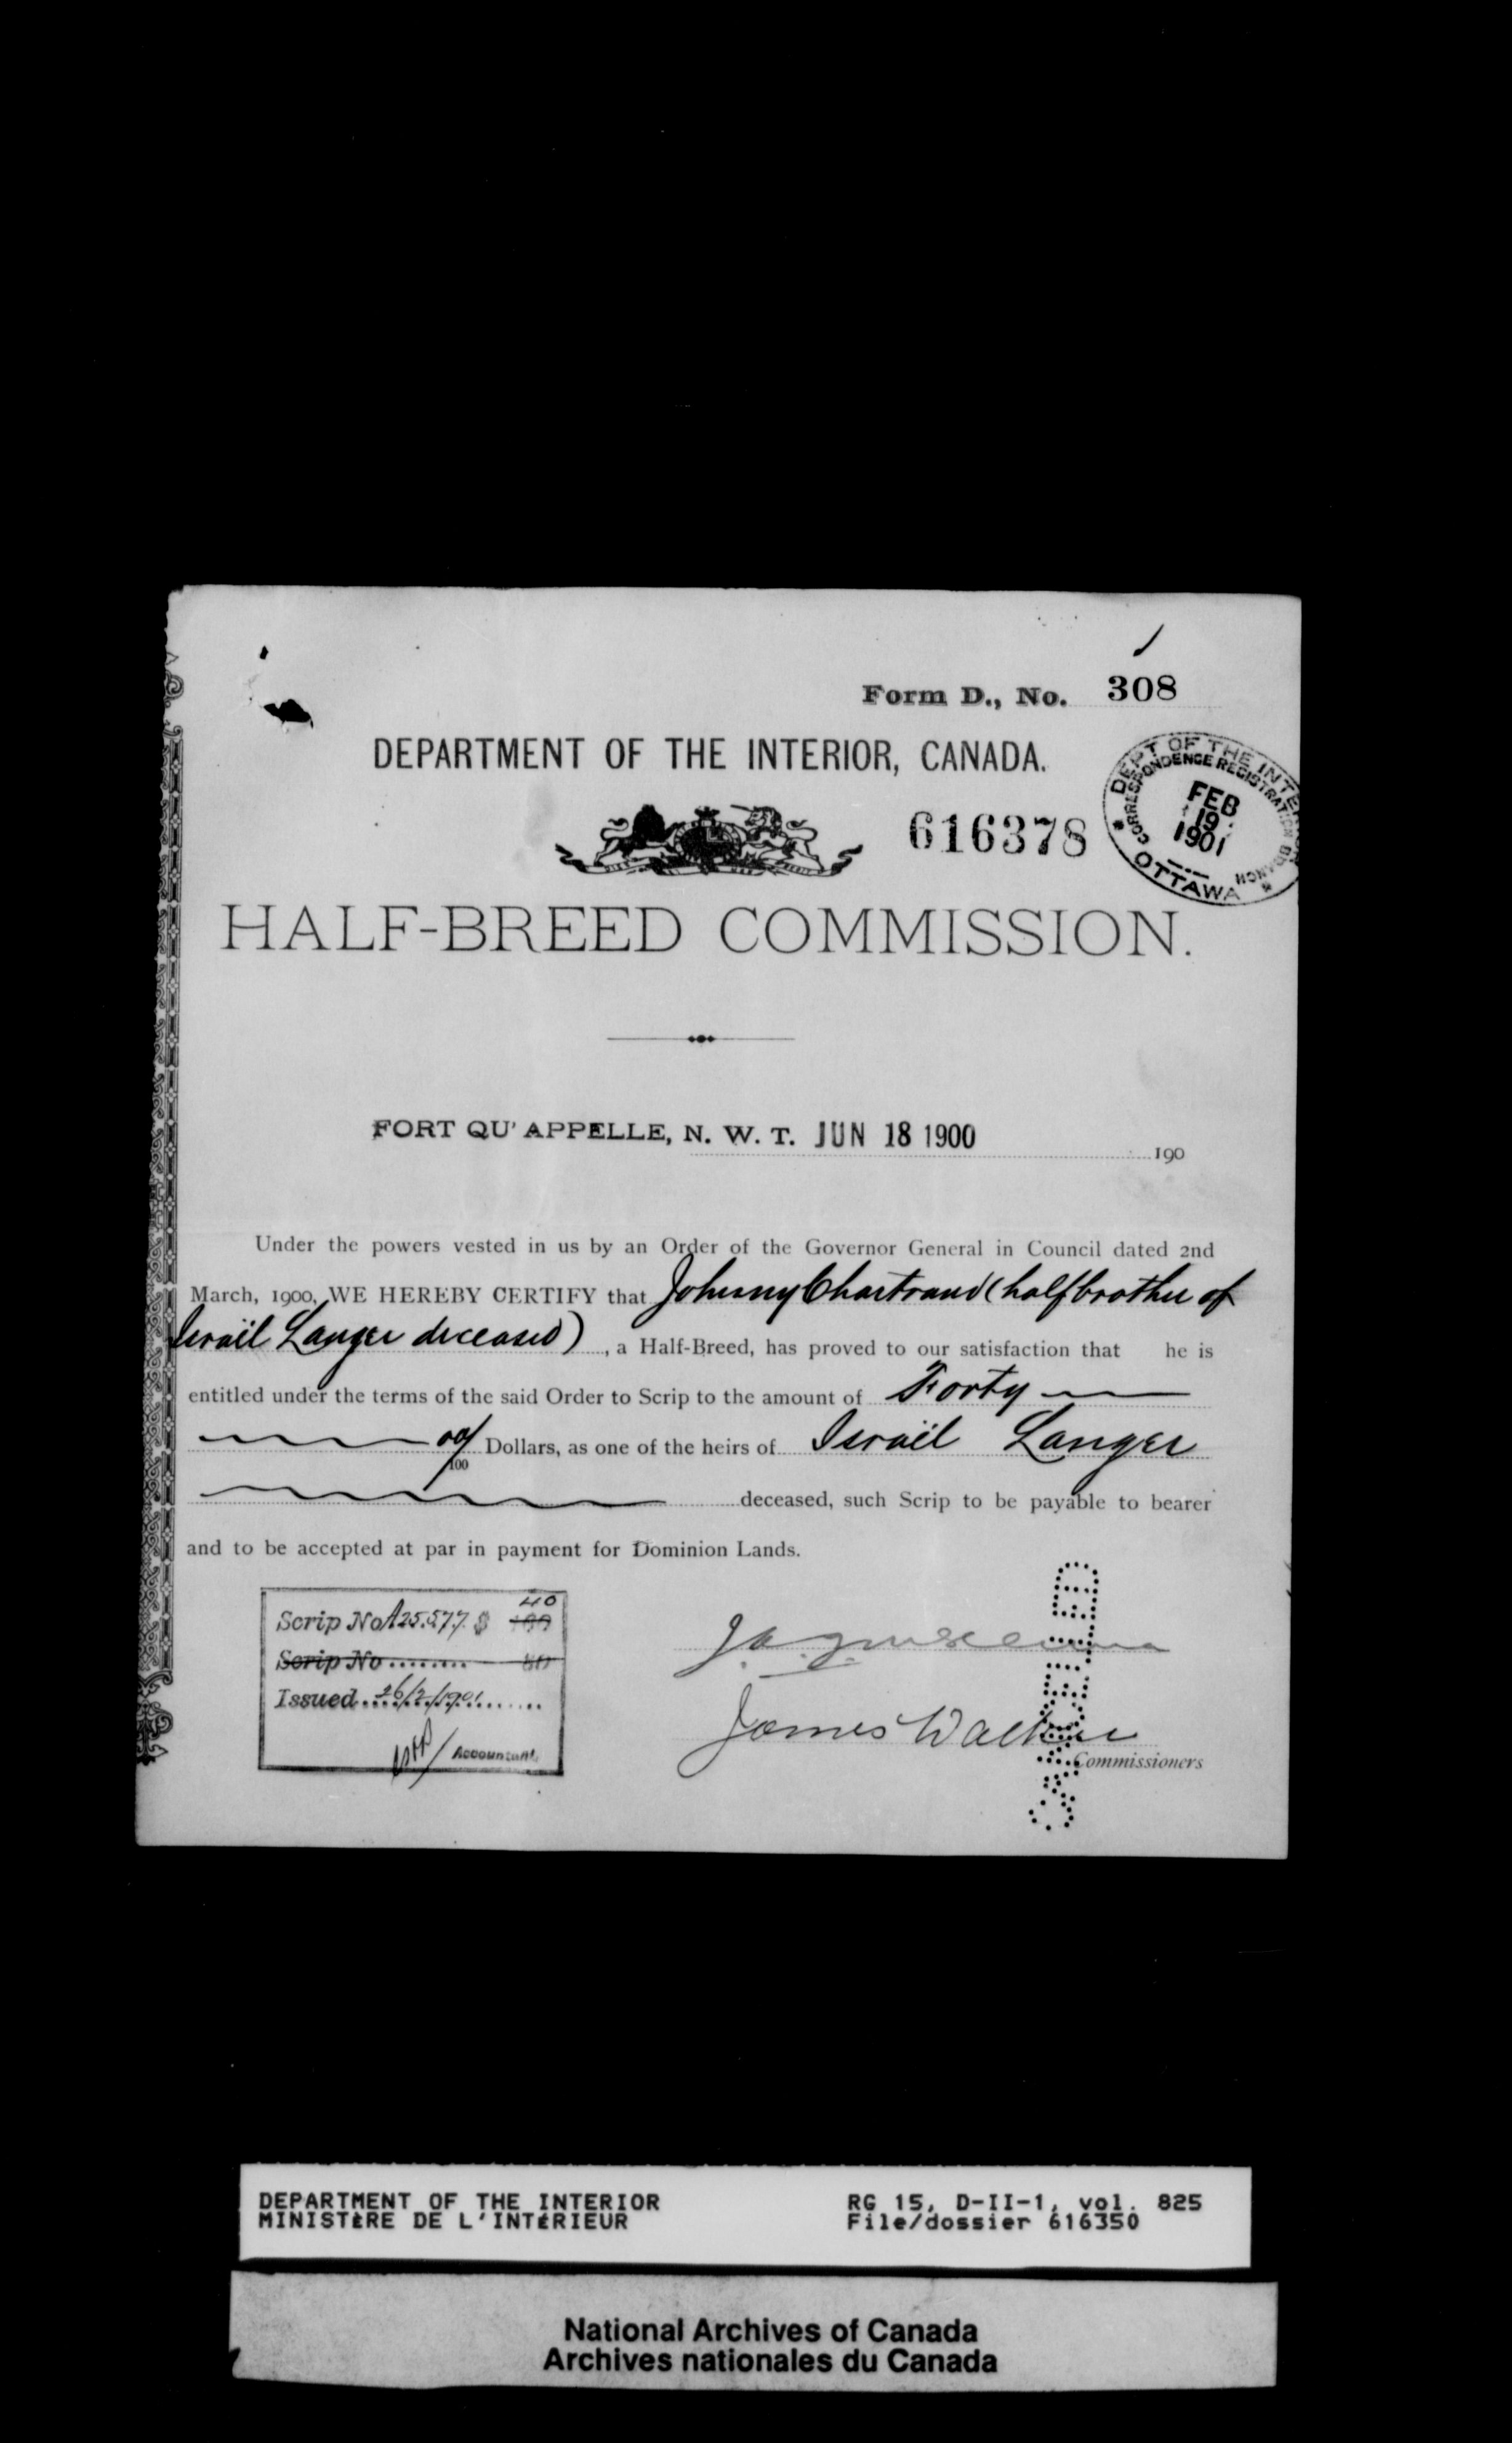 Form D., No. 308
DEPARTMENT OF THE INTERIOR, CANADA.
DEPT OF THE INTE
CORRESPONDENCE REGISTRATION BRANCH
FEB
19
1901
OTTAWA
616378
HALF-BREED COMMISSION.
FORT QU'APPELLE, N. W. T. JUN 18 1900 190
Under the powers vested in us by an Order of the Governor General in Council dated 2nd
March, 1900, WE HEREBY CERTIFY that Johnny Chartrand (half brother of
Israël Langer deceased), a Half-Breed, has proved to our satisfaction that he is
entitled under the terms of the said Order to Scrip to the amount of Forty
00/100 Dollars, as one of the heirs of Israël Langer
deceased, such Scrip to be payable to bearer
and to be accepted at par in payment for Dominion Lands.
40
Scrip No A25.577. $ 100
Scrip No ........ 80
Issued 26/2/1901
Accountant
James Walker
Commissioners
CANCELLED
DEPARTMENT OF THE INTERIOR RG 15, D-II-1, vol. 825
MINISTÈRE DE L'INTÉRIEUR File/dossier 616350
National Archives of Canada
Archives nationales du Canada